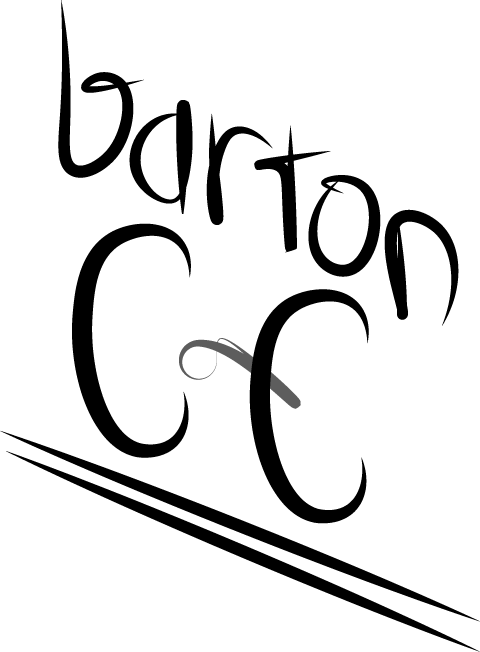 barton
CC